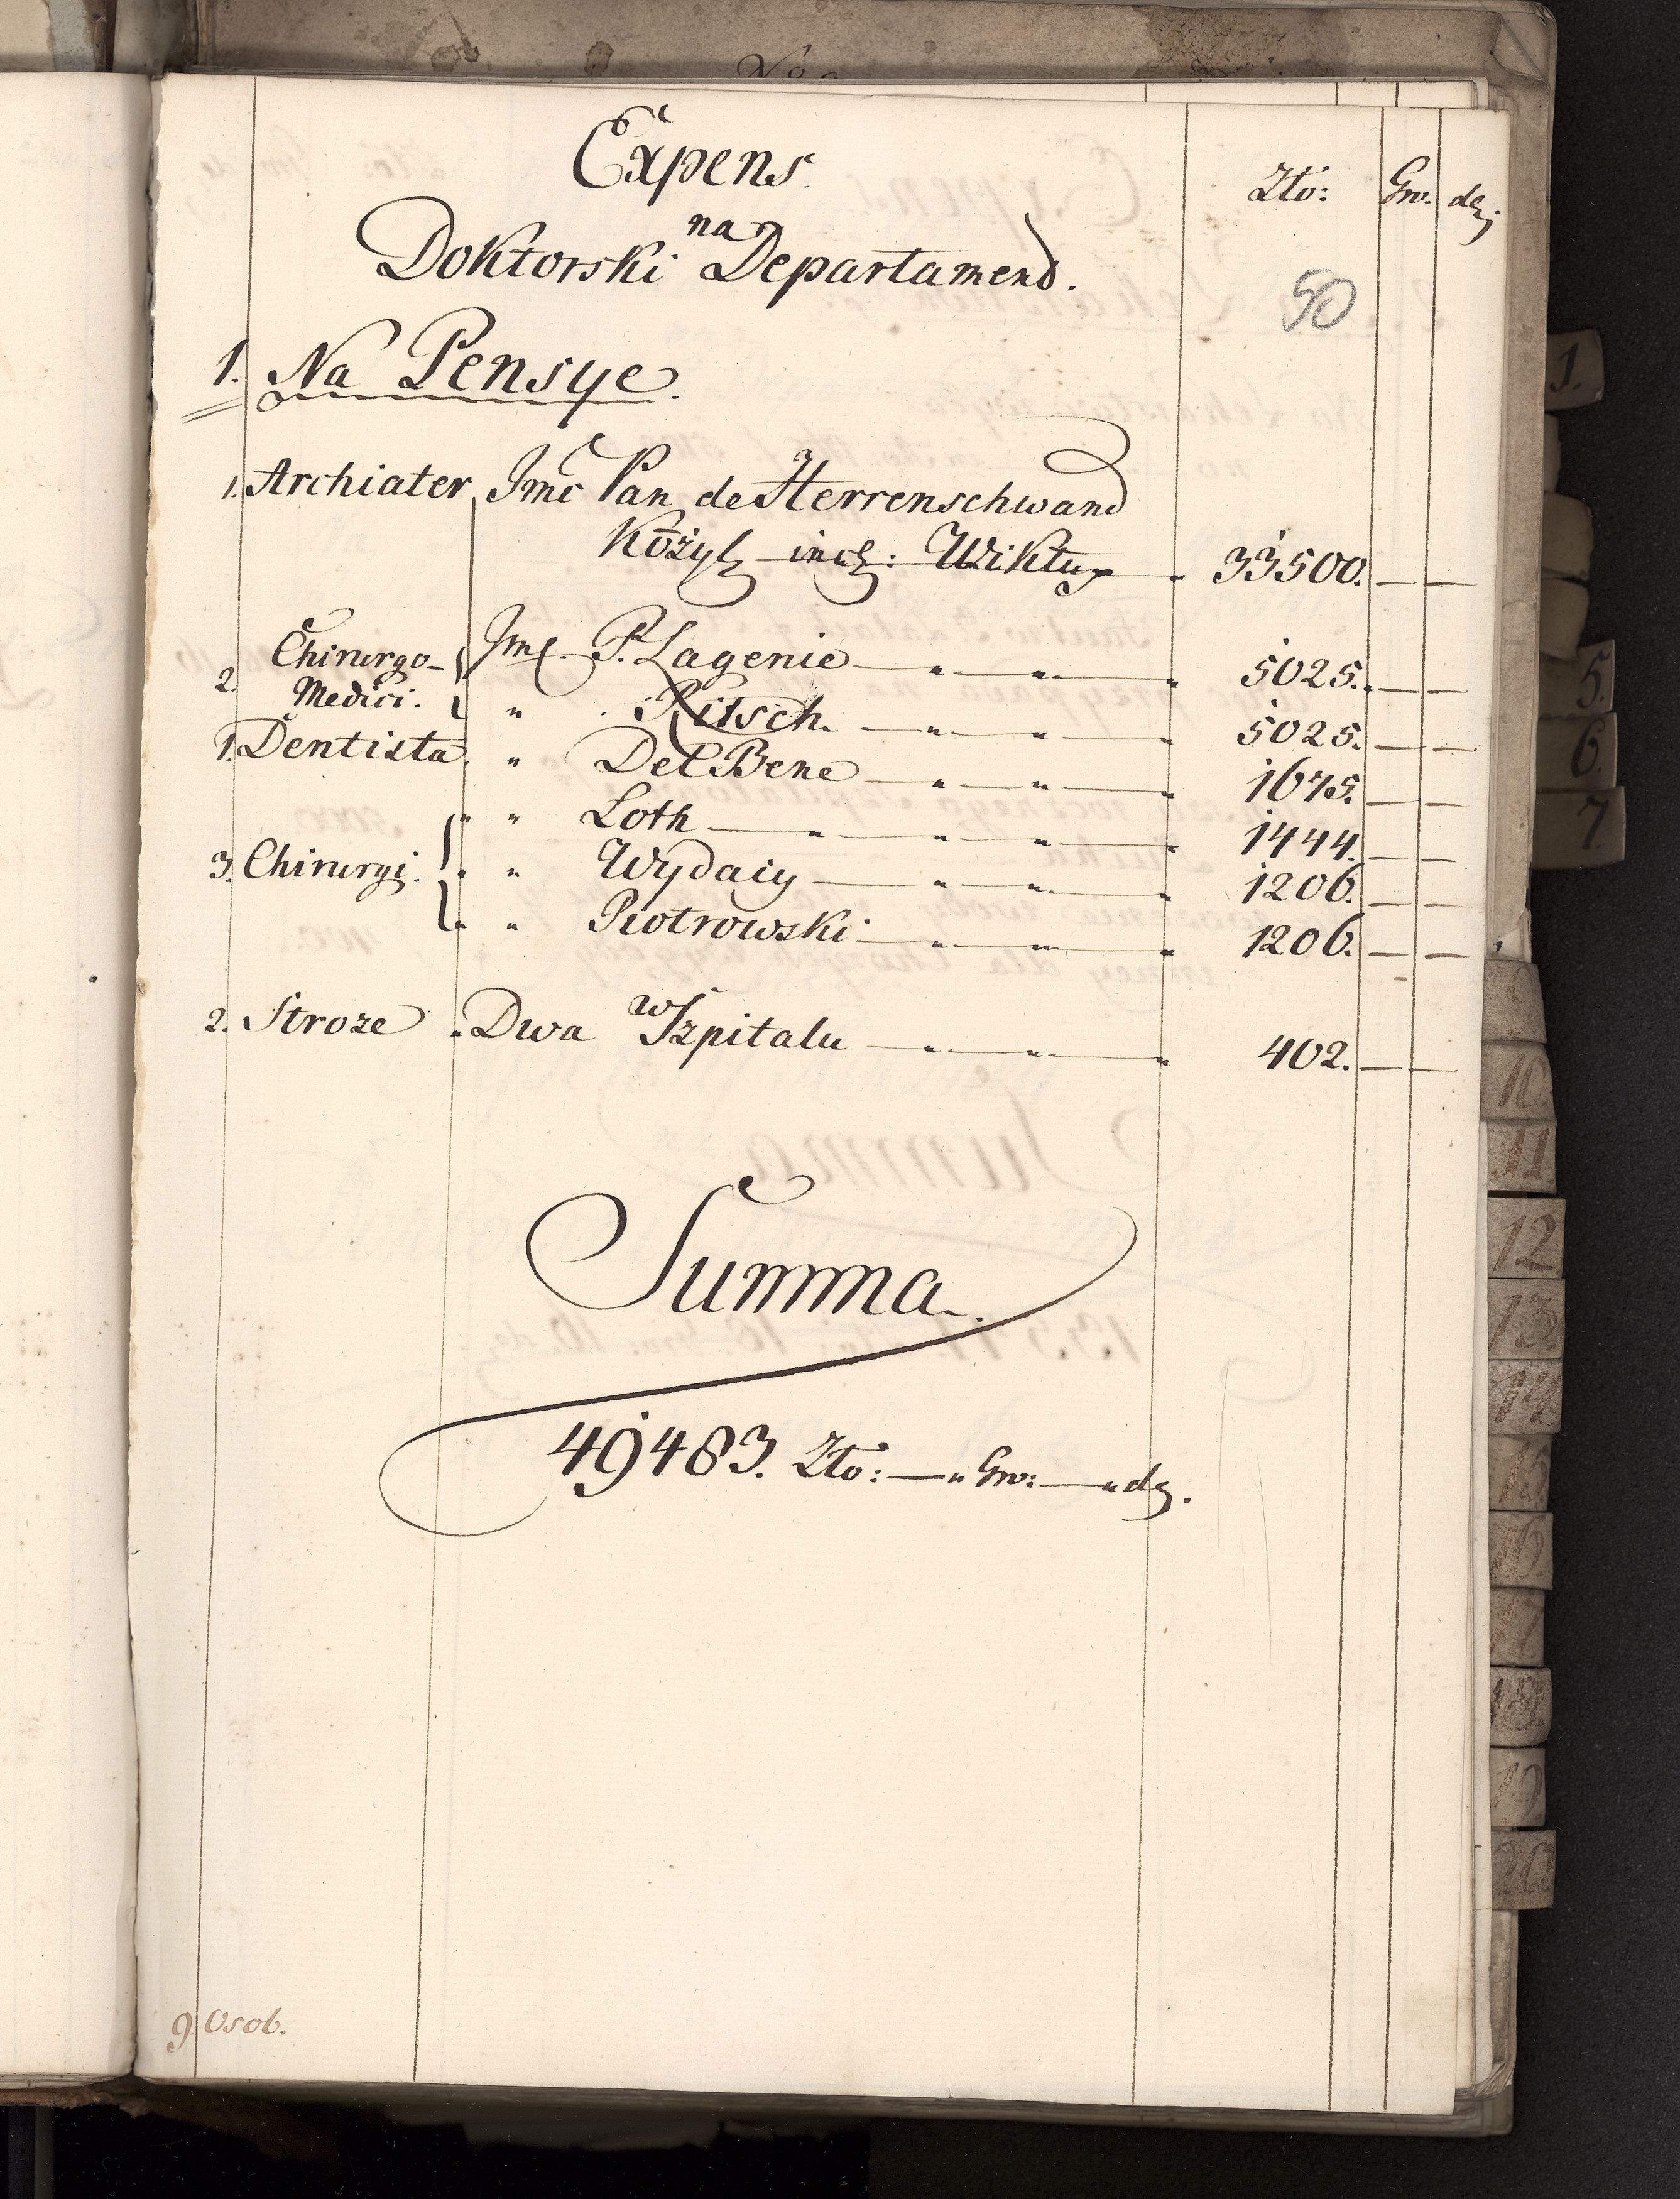 Expens. Zło: Gro. den
na
Doktorski Departamend.
50
1. Na Pensye.
1. Archiater Jmć Pan de Herrenschwand
incl: Wiktuy 33500.
2. Chirurgo- Jmć. P. Lagenie 5025.
Medici. " Ritsch. 5025.
1. Dentista " Del Bene 1675.
" Loth 1444.
3. Chirurgi. " Wydaiy 1206.
" Piotrowski 1206.
2. Stroze Dwa w Szpitalu 402.
Summa.
49483. Zło: —" Gro: —" d.
9 Osob.
1.
5.
6.
7
10
11
12
13
14
15
16
17
18
19
20